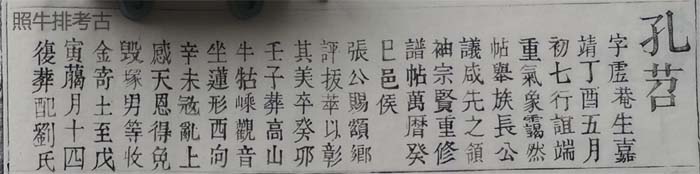 照牛排考古
孔苕
字虛菴生嘉
靖丁酉五月
初七行誼端
重氣象靄然
帖舉族長公
議咸先之領
袖宗賢重修
譜帖萬曆癸
巳邑侯
張公賜頒鄉
評拔萃以彰
其美卒癸邜
壬子葬高山
牛牯嵊觀音
坐蓮形西向
辛未冦亂上
感天恩得免
毀塚男等收
金寄土至戊
寅臈月十四
復葬配劉氏